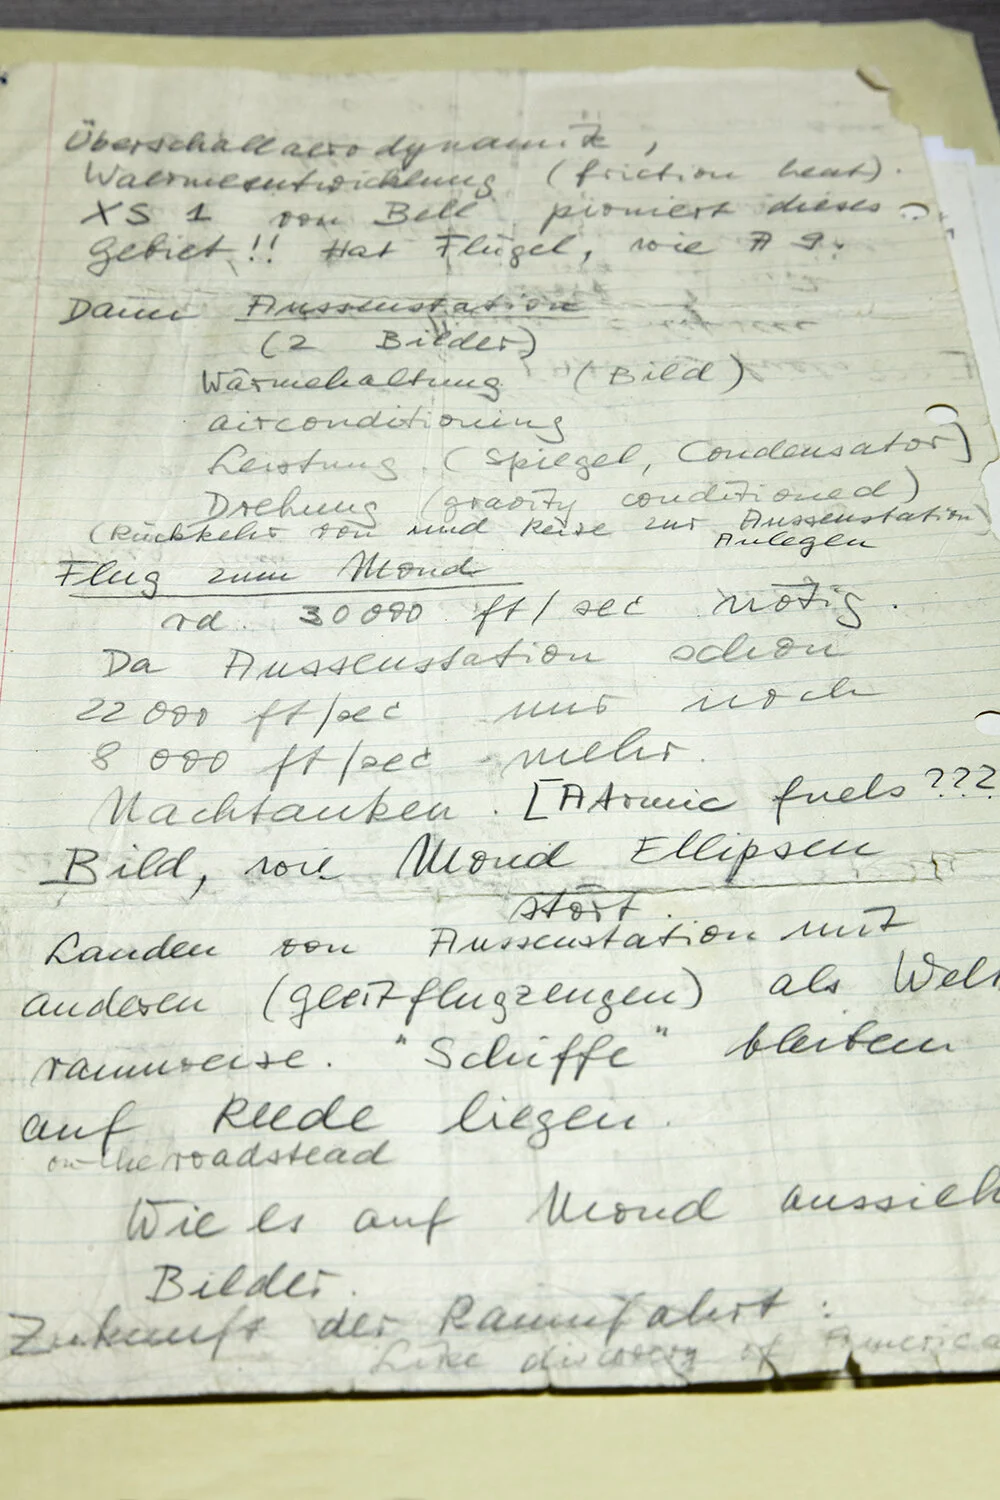 Überschallaerodynamik,
Waermeentwicklung (friction heat).
XS 1 von Bell pioniert dieses
Gebiet!! Hat Flügel, wie A 9.
Dann Aussenstation
(2 Bilder)
Wärmehaltung (Bild)
airconditioning
Leistung (Spiegel, Condensator)
Drehung (gravity conditioned)
(Rückkehr von und Reise zur Aussenstation
Anlegen
Flug zum Mond
rd. 30 000 ft/sec nötig.
Da Aussenstation schon
22 000 ft/sec nur noch
8 000 ft/sec mehr.
Nachtanken. [Atomic fuels???
Bild, wie Mond Ellipsen
stört.
Landen von Aussenstation mit
anderen (Gleitflugzeugen) als Welt
raumreise. "Schiffe" bleiben
auf Reede liegen.
on the roadstead
Wie es auf Mond aussieh
Bilder.
Zukunft der Raumfahrt:
Like discovery of America